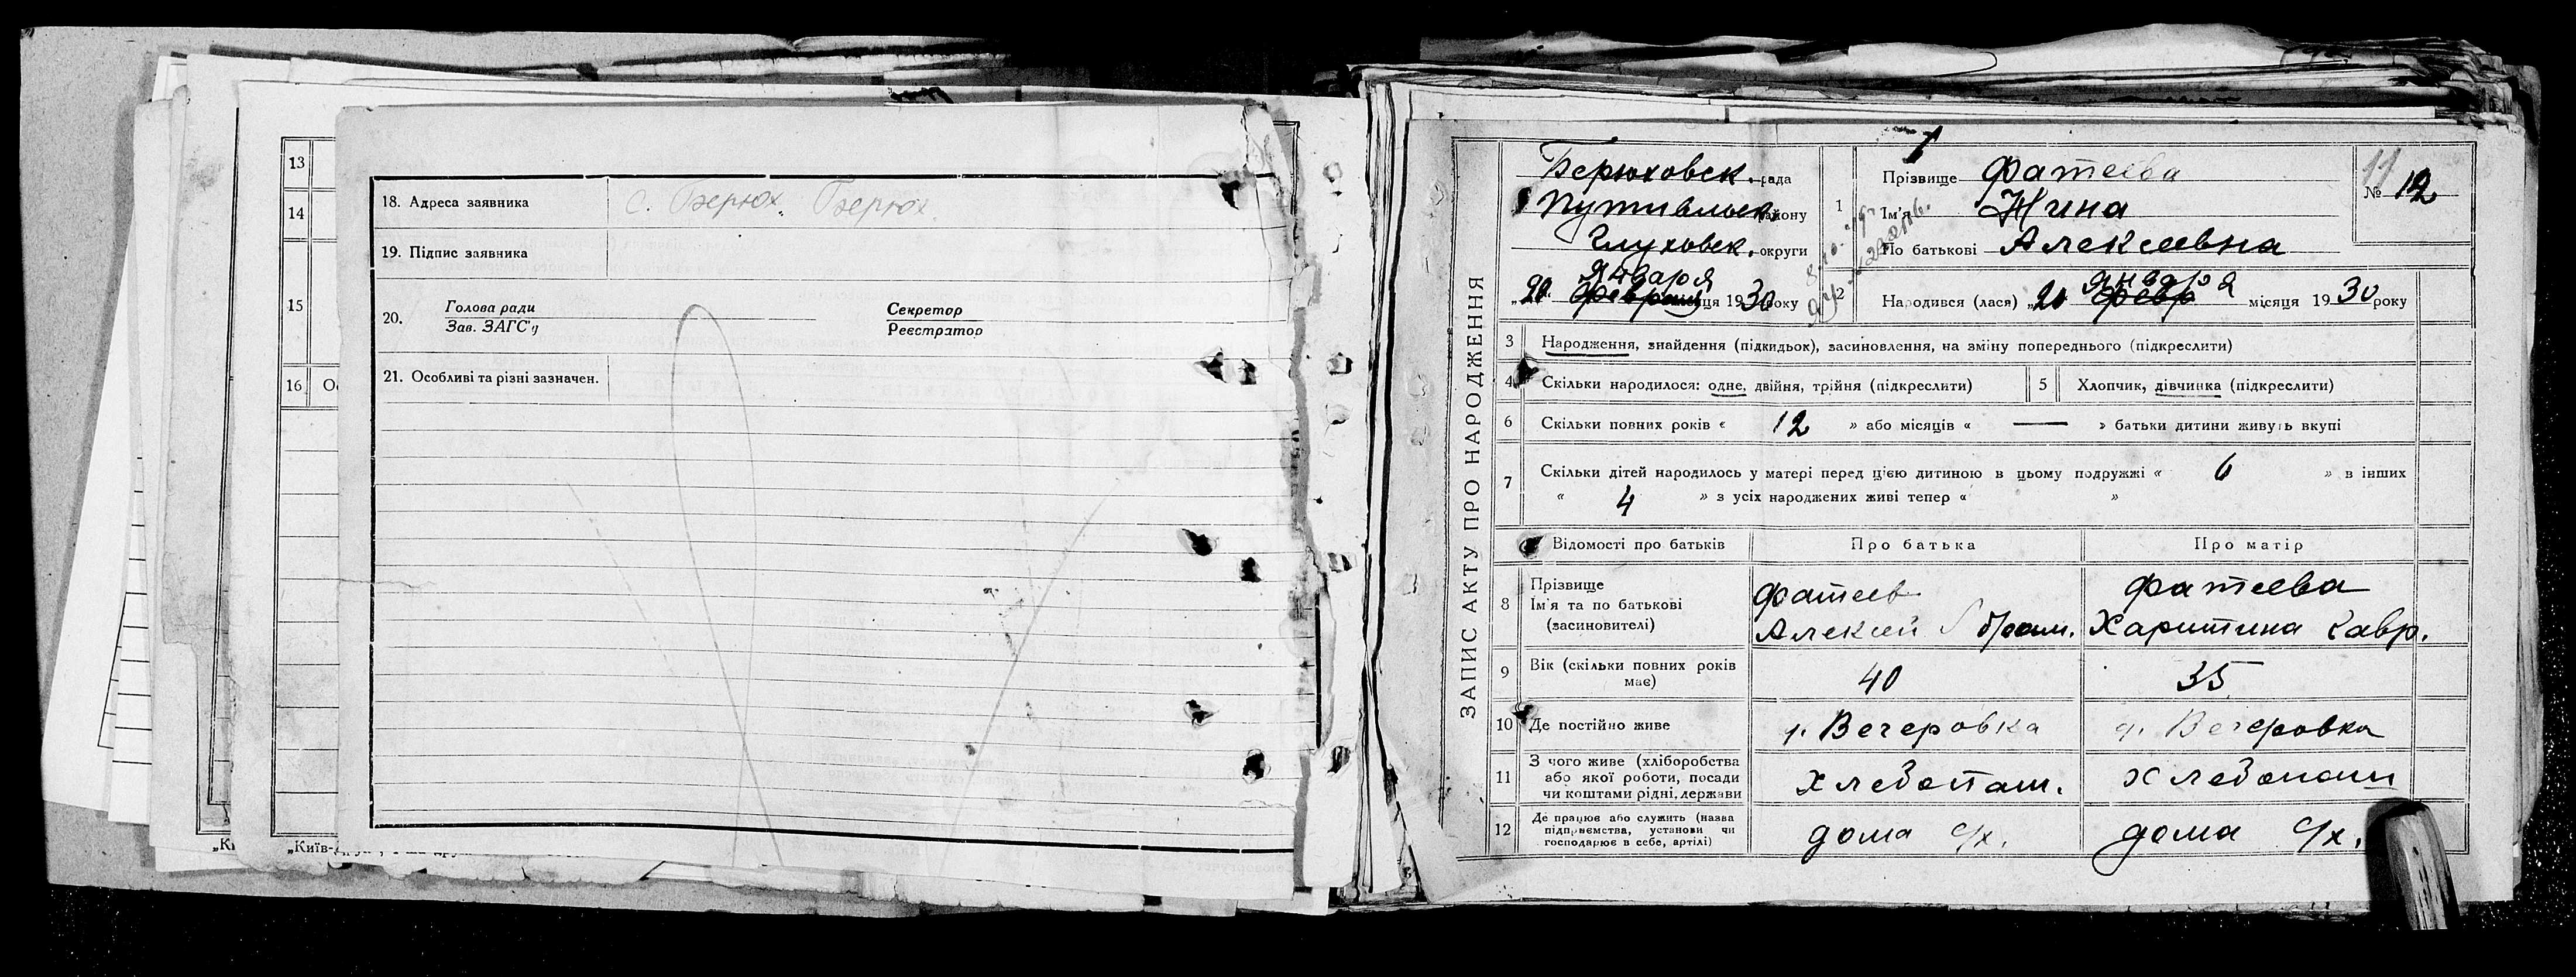 13
14
15
16 Ос
18. Адреса заявника с. Берюх. Берюх.
19. Підпис заявника
20. Голова ради Секретар
Зав. ЗАГС'у Реєстратор
21. Особливі та різні зазначен.
„Київ-Друк",
ЗАПИС АКТУ ПРО НАРОДЖЕННЯ
Берюховск. рада
Путивльск. району
Глуховск. округи
января
„20 феврал місяця 1930 року
1 Прізвище Фатеева
Ім'я Нина
По батькові Алексеевна
11
№ 12
января
2 Народився (лася) „20 февр місяця 1930 року
3 Народження, знайдення (підкидьок), засиновлення, на зміну попереднього (підкреслити)
4 Скільки народилося: одне, двійня, трійня (підкреслити) 5 Хлопчик, дівчинка (підкреслити)
6 Скільки повних років « 12 » або місяців « — » батьки дитини живуть вкупі
7 Скільки дітей народилось у матері перед цією дитиною в цьому подружжі « 6 » в інших
« 4 » з усіх народжених живі тепер « »
Відомості про батьків Про батька Про матір
8 Прізвище Фатеев Фатеева
Ім'я та по батькові
(засиновителі) Алексей Харитина Лавр.
9 Вік (скільки повних років 40 35
має)
10 Де постійно живе д. Вечеровка д. Вечеровка
11 З чого живе (хліборобства
або якої роботи, посади Хлебопаш. Хлебопаш
чи коштами рідні, держави
12 Де працює або служить (назва
підприємства, установи чи дома с/х. дома с/х.
господарює в себе, артілі)